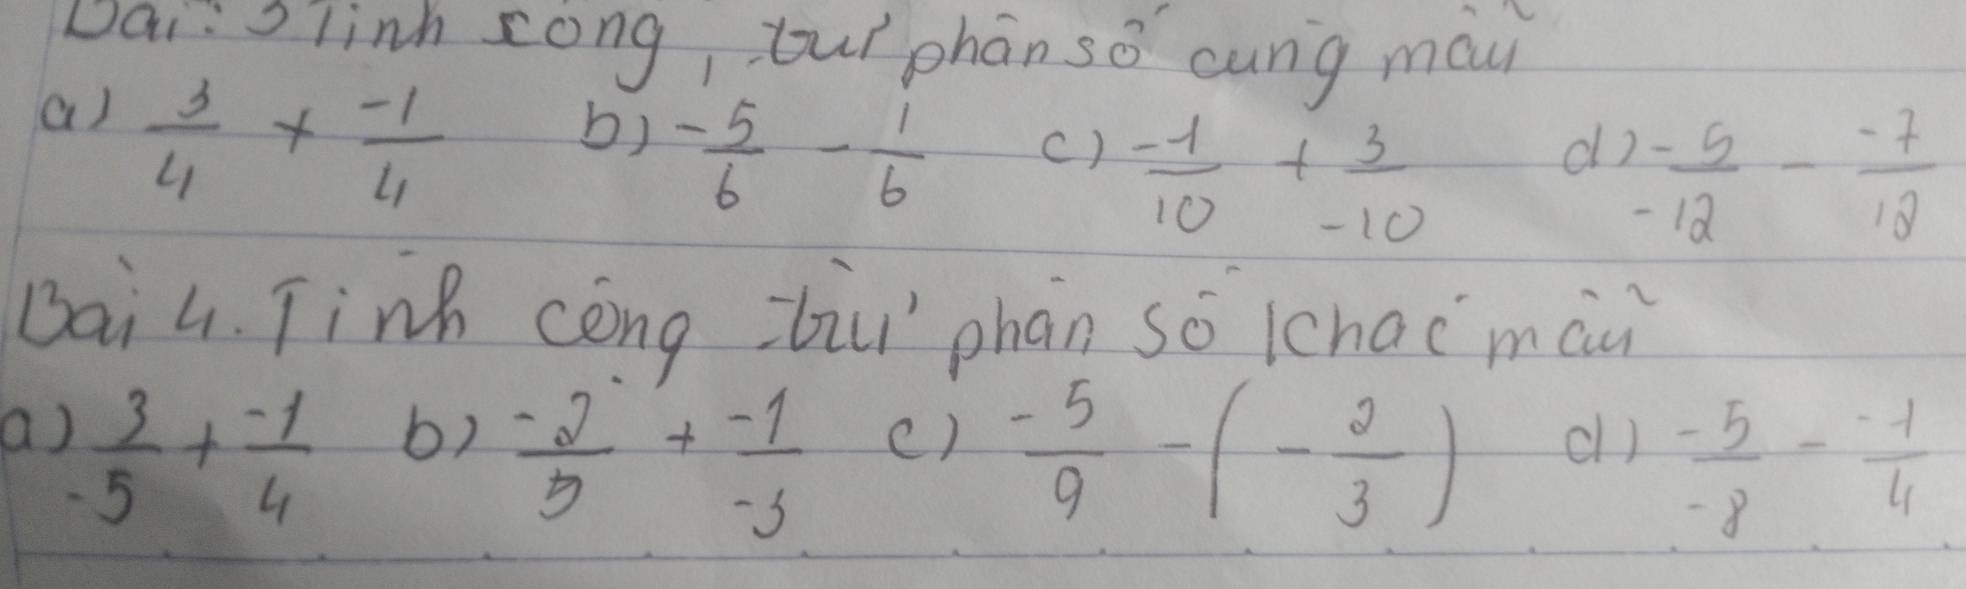 Bài: 3 Tính cộng, trừ phân số cùng mẫu
a) 3/4 + -1/4 b) -5/6 - 1/6 c) -1/10 + 3/-10 d) -5/-12 - -7/12
Bài 4. Tính cộng trừ phân số khác mẫu
a) 3/-5 + -1/4 b) -2/5 + -1/-3 c) -5/9 - (-2/3) d) -5/-8 - -1/4